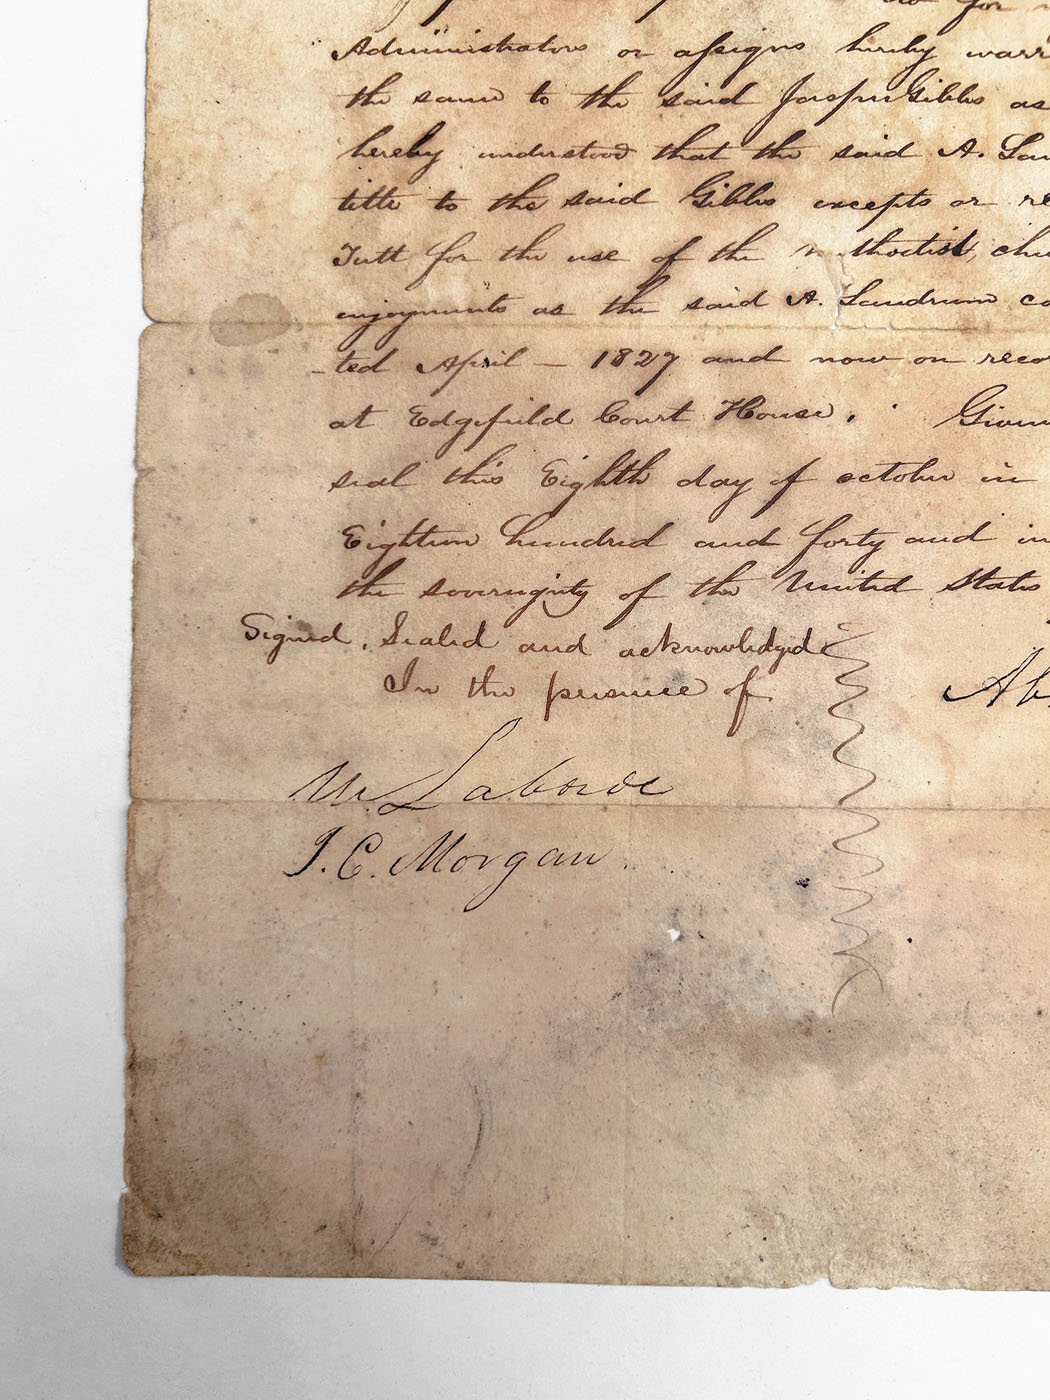 do for
Administrators or assigns hereby warr
the same to the said Jasper Gibbs as
hereby understood that the said A. Lan
title to the said Gibbs excepts or re
Tutt for the use of the m thodist, chu
enjoyments as the said A. Landrum co
-ted April — 1827 and now on reco
at Edgefield Court House. Given
seal this Eighth day of october in
Eighteen hundred and forty and in
the sovereignty of the United States
Signed, Sealed and acknowledged
In the presence of
Ab
M Laborde
J. C. Morgan